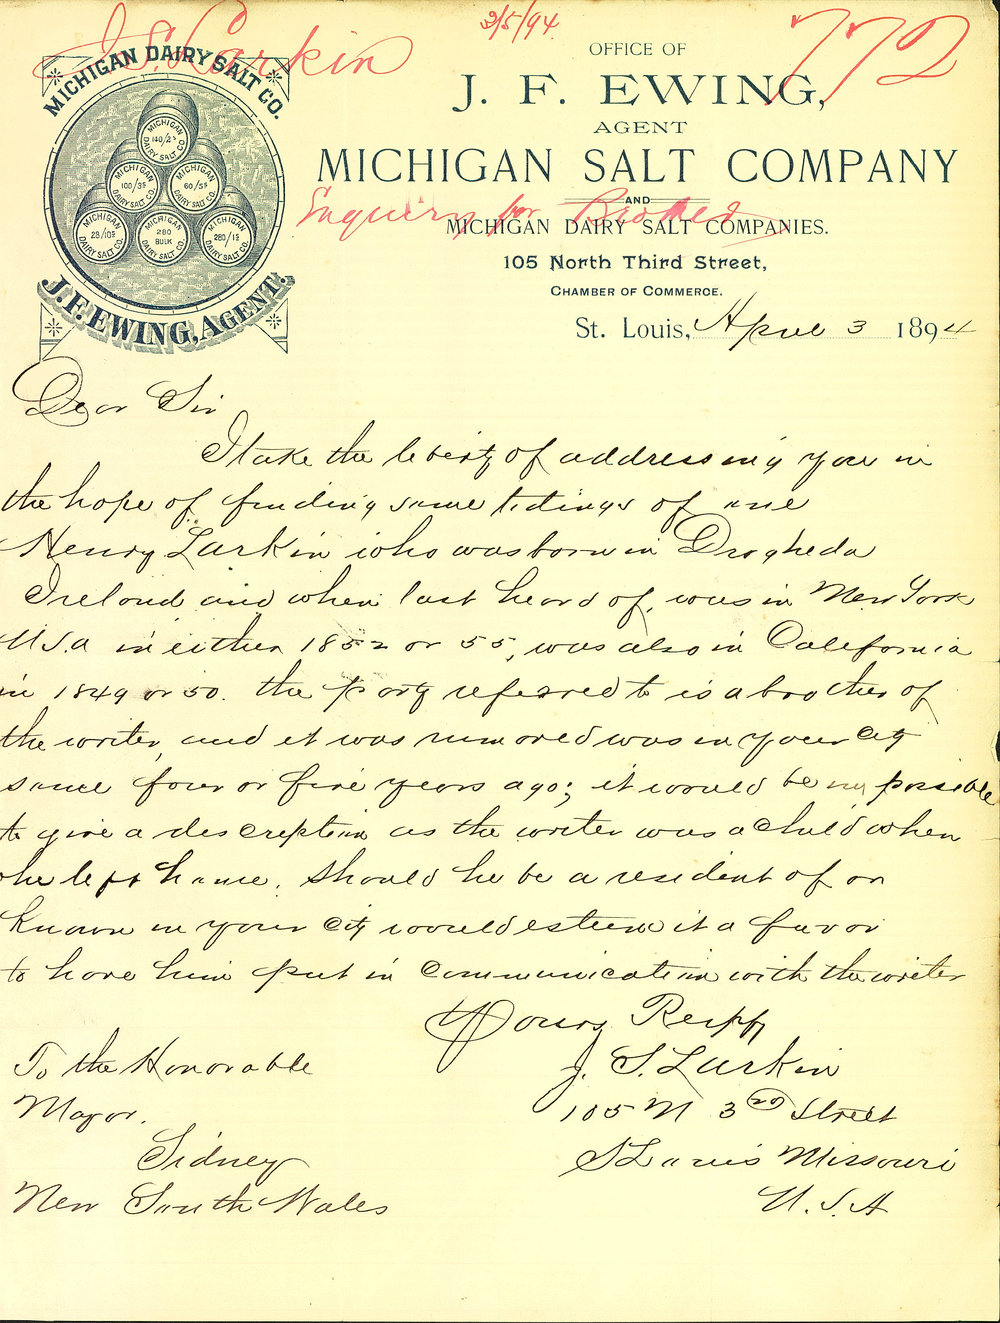 J. S. Larkin
2/5/94.
772
OFFICE OF
J. F. EWING,
AGENT
MICHIGAN SALT COMPANY
AND
MICHIGAN DAIRY SALT COMPANIES.
Enquiry for Brother
105 North Third Street,
CHAMBER OF COMMERCE.
St. Louis, April 3 1894
MICHIGAN DAIRY SALT CO.
MICHIGAN 140/2s DAIRY SALT CO.
MICHIGAN 100/3s DAIRY SALT CO.
MICHIGAN 60/5s DAIRY SALT CO.
MICHIGAN 28/10s DAIRY SALT CO.
MICHIGAN 280 BULK DAIRY SALT CO.
MICHIGAN 280/1s DAIRY SALT CO.
J.F. EWING, AGENT.
Dear Sir
I take the liberty of addressing you in
the hope of finding some tidings of one
Henry Larkin who was born in Drogheda
Ireland and when last heard of, was in New York
U.S.a in either 1852 or 55, was also in California
in 1849 or 50. the party referred to is a brother of
the writer, and it was rumored was in your city
some four or five years ago; it would be impossible
to give a description as the writer was a child when
he left home. Should he be a resident of or
known in your city would esteem it a favor
to have him put in communication with the writer
Yours Respy
J. S. Larkin
105 N 3rd Street
St Louis Missouri
U.S.A
To the Honorable
Mayor.
Sidney
New South Wales